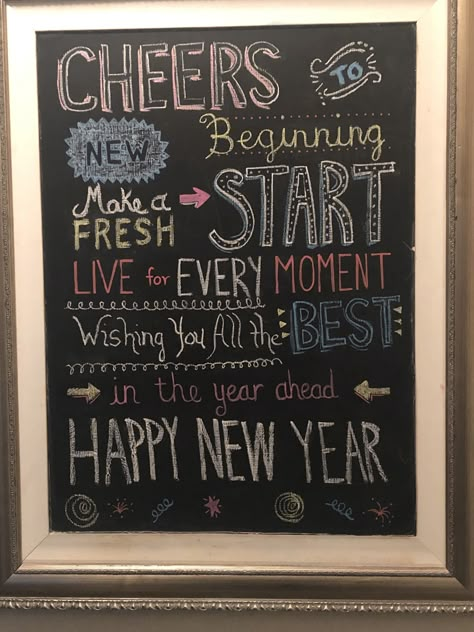 CHEERS TO
NEW Beginning
Make a FRESH START
LIVE for EVERY MOMENT
Wishing You All the BEST
in the year ahead
HAPPY NEW YEAR